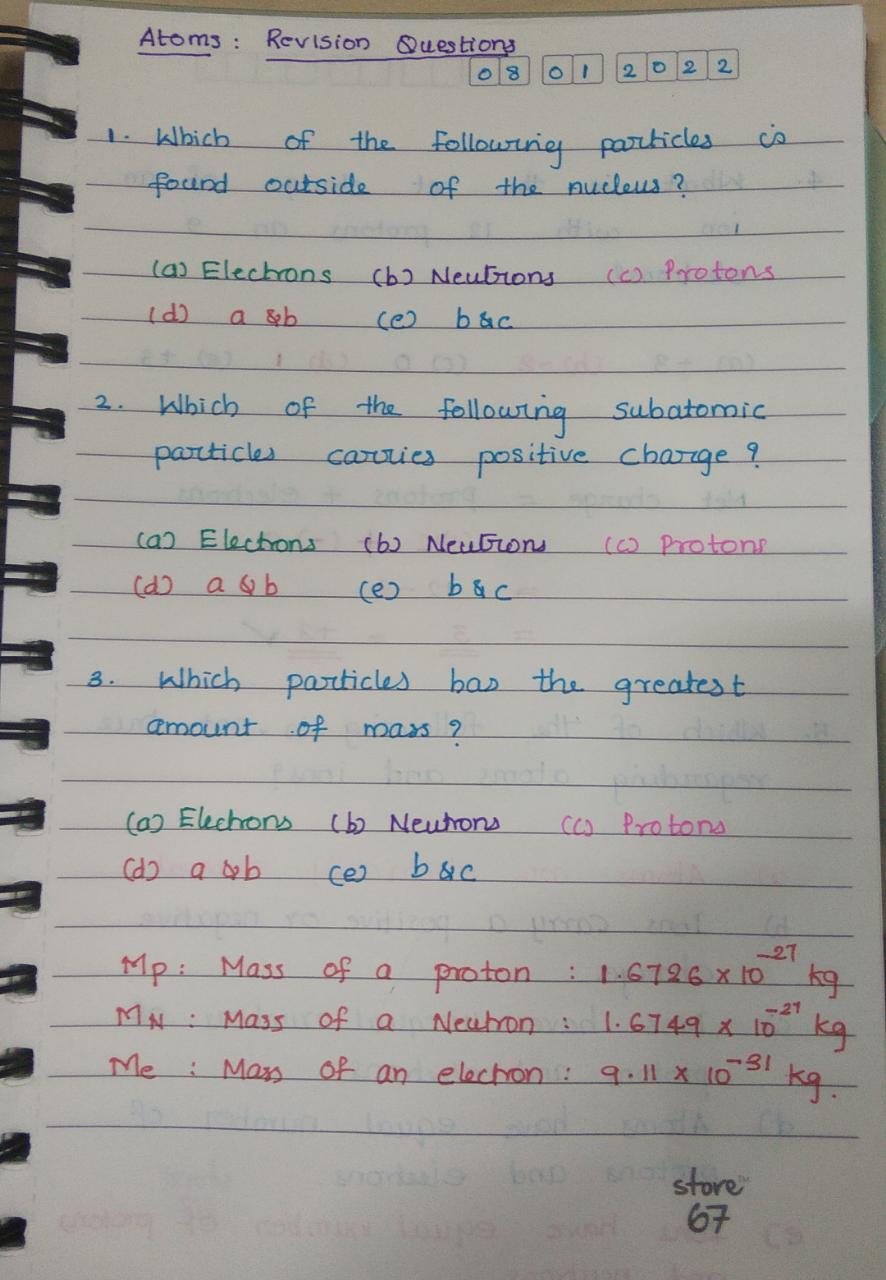 Atoms: Revision Questions
08 01 2022
1. Which of the following particles is
found outside of the nucleus?
(a) Electrons (b) Neutrons (c) Protons
(d) a & b (e) b & c
2. Which of the following subatomic
particles carries positive charge?
(a) Electrons (b) Neutrons (c) Protons
(d) a & b (e) b & c
3. Which particles has the greatest
amount of mass?
(a) Electrons (b) Neutrons (c) Protons
(d) a & b (e) b & c
Mp: Mass of a proton : 1.6726 x 10⁻²⁷ kg
MN : Mass of a Neutron : 1.6749 x 10⁻²⁷ kg
Me : Mass of an electron : 9.11 x 10⁻³¹ kg.
store™
67